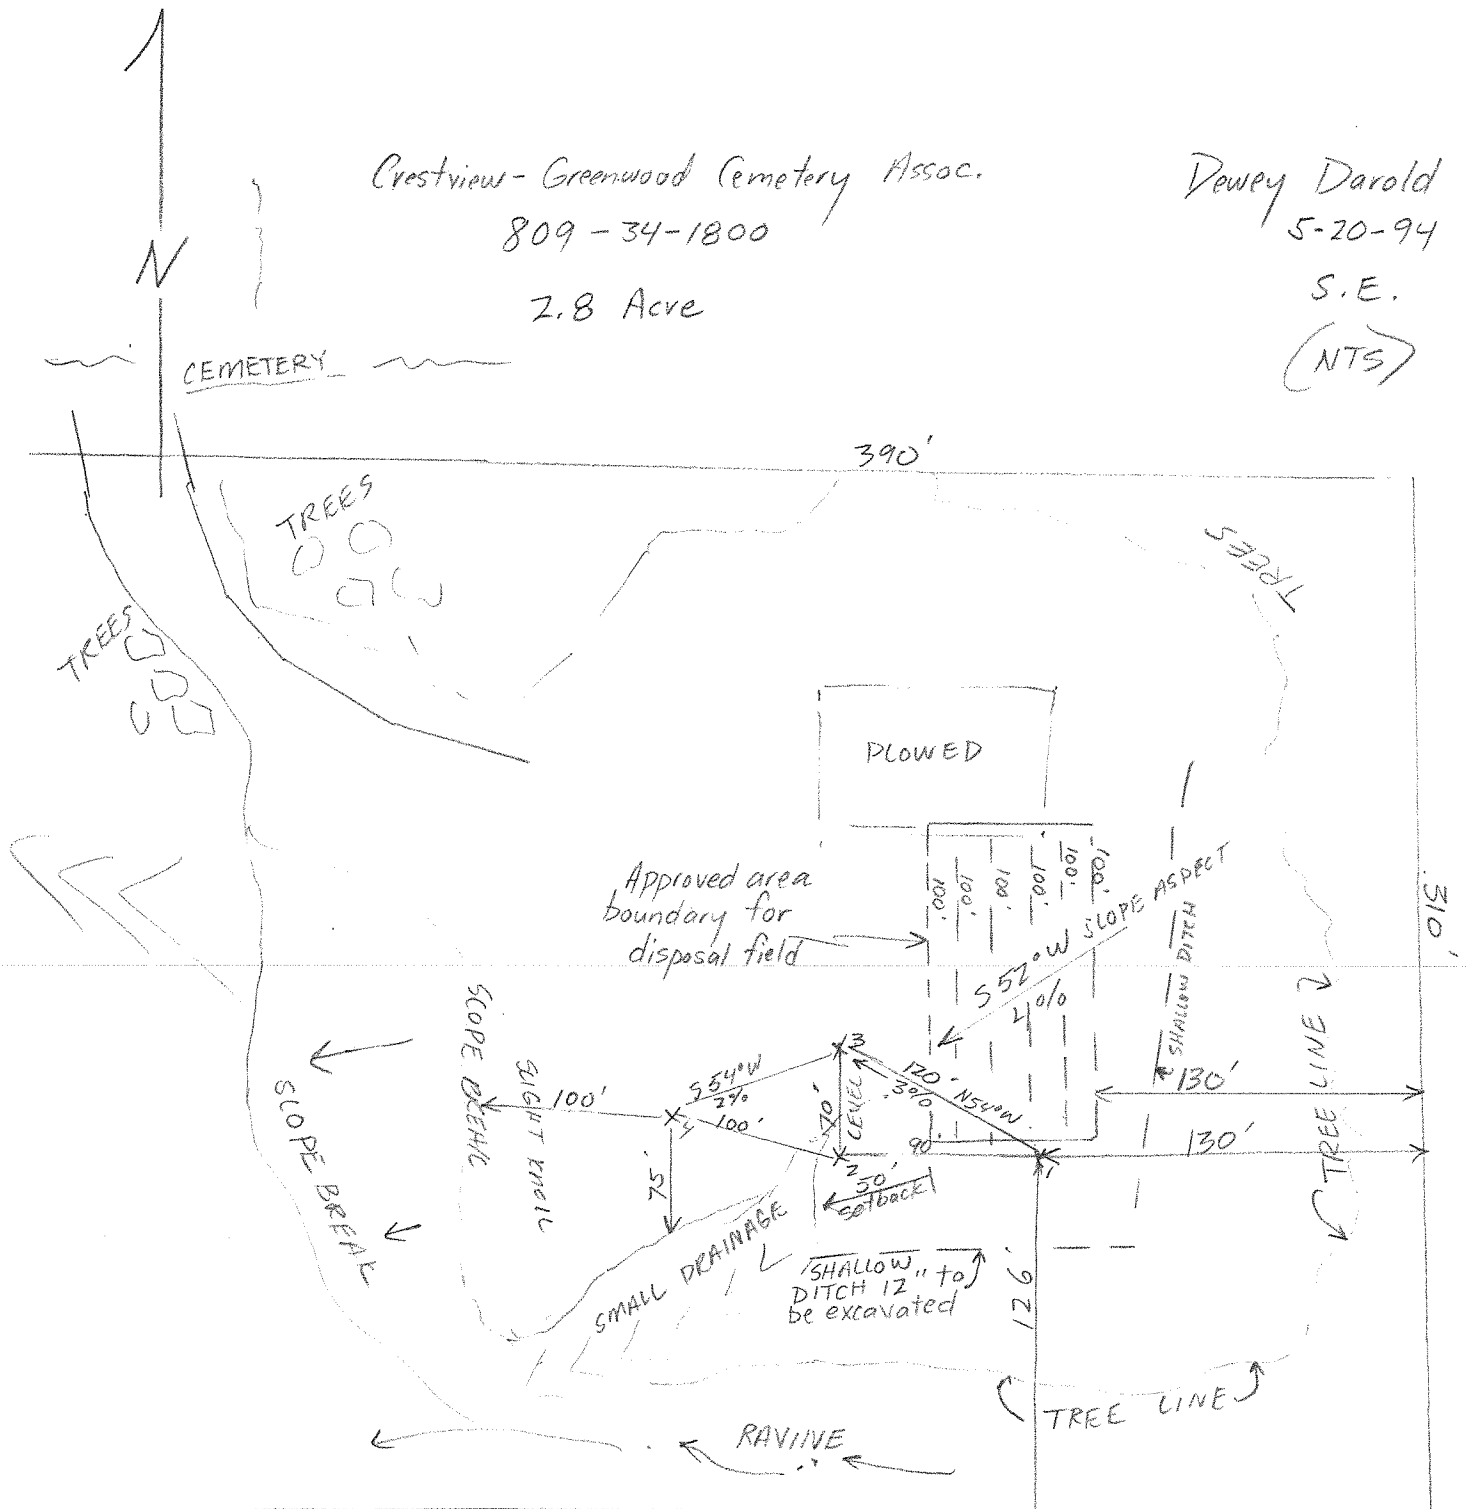 Crestview - Greenwood Cemetery Assoc.
809-34-1800
2.8 Acre
Dewey Darold
5-20-94
S.E.
(NTS)
N
CEMETERY
390'
TREES
TREES
TREES
PLOWED
310'
Approved area
boundary for
disposal field
100'
100'
100'
100'
100'
100'
S 52° W SLOPE ASPECT
4%
SHALLOW DITCH
TREE LINE
130'
130'
SLOPE BREAK
SLIGHT KNOLL
SLOPE BREAK
100'
S 54° W
2%
100'
4
3
70'
LEVEL
120' N54°W
3%
90'
2
50'
setback
75'
SMALL DRAINAGE
SHALLOW
DITCH 12" to
be excavated
126'
TREE LINE
RAVINE